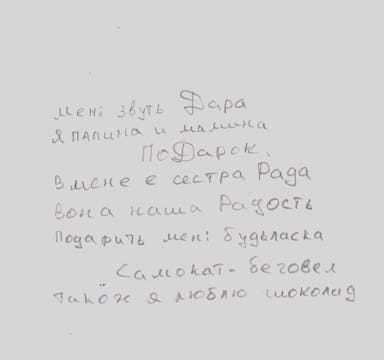 мені звуть Дара
я папина и мамина
ПоДарок.
В мене є сестра Рада
вона наша Радость
подаріть мені будьласка
Самокат-беговел
також я люблю шоколад